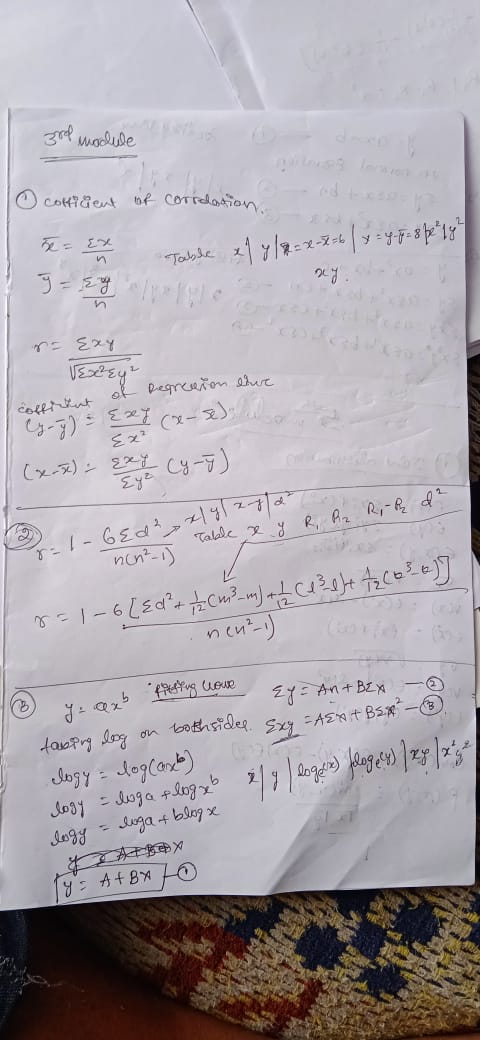 3rd module
① cofficient of correlation.
x̄ = Σx/n
Table x | y | X = x-x̄ = 6 | Y = y-ȳ = 8 | x² | y²
xy.
ȳ = Σy/n
r = Σxy/√Σx²Σy²
cofficient of Regression line
(y-ȳ) = Σxy/Σx² (x-x̄)
(x-x̄) = Σxy/Σy² (y-ȳ)
② r = 1 - 6Σd²/n(n²-1) → x | y | x-y | d²
Table x y R₁ R₂ R₁-R₂ d²
r = 1 - 6[Σd² + 1/12(m³-m) + 1/12(l³-l) + 1/12(k³-k)]/n(n²-1)
③ y = ax^b fitting curve
Σy = An + BΣx —②
taking log on bothsides.
Σxy = AΣx + BΣx² —③
logy = log(ax^b)
x | y | logₑ(x) | logₑ(y) | xy | x² y²
logy = loga + logx^b
logy = loga + blogx
y = A+BX —①